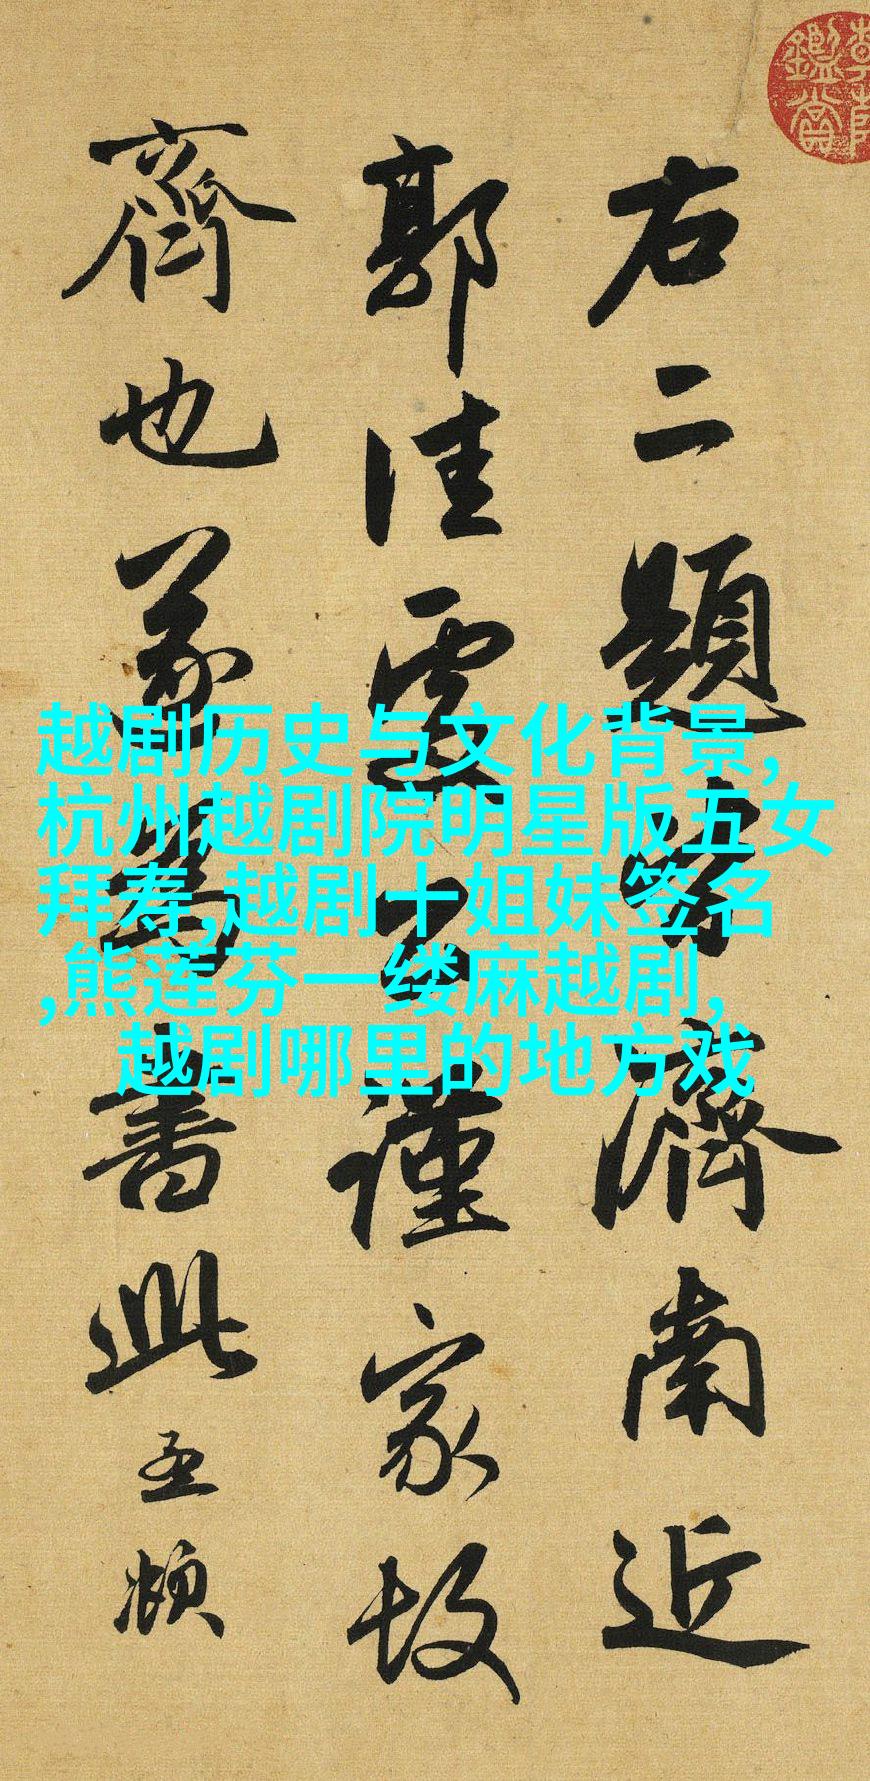 右二題濟南近
郭佳處公謹家故
齊也遂為書此孟頫
越剧历史与文化背景,
杭州越剧院明星版五女
拜寿,越剧十姐妹签名
,熊莲芬一缕麻越剧,
越剧哪里的地方戏
鑑賞